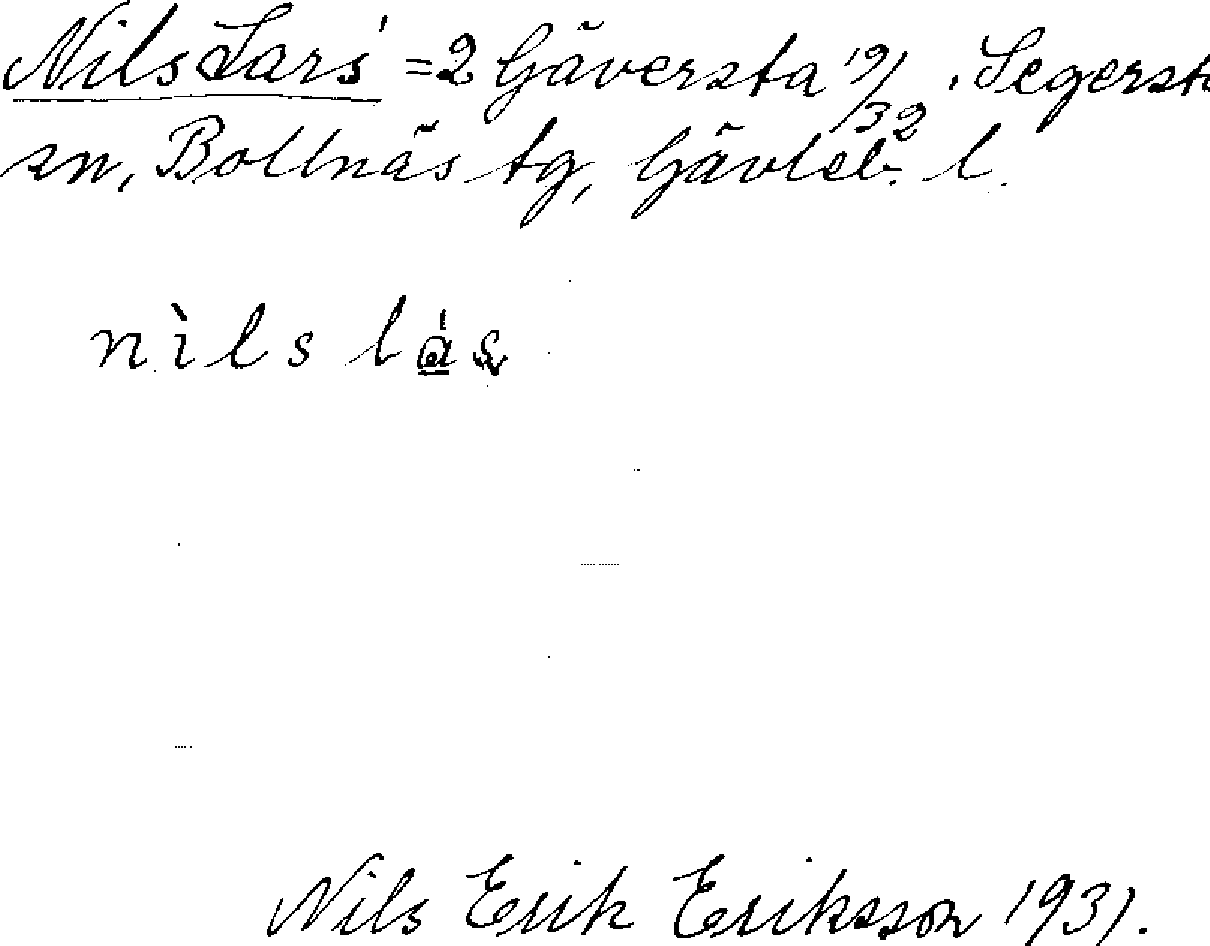 Nils Lars' = 2 Gäversta 19/32. Segerst
sn, Bollnäs tg, Gävleb. l.
nìls lás
Nils Erik Eriksson 1931.